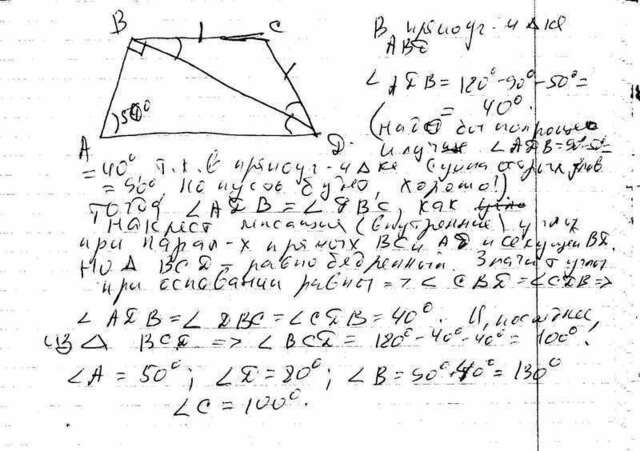 B
C
50°
A
D
В прямоуг-м Δке
ABD
∠ADB = 180°-90°-50° =
= 40°.
(надо бы попроще
и лучше ∠ADB=90°-50°=
= 40° т.к. в прямоуг-м Δке сумма острых углов
= 90°, но пусть будет, хорошо!)
Тогда ∠ADB = ∠DBC, как
накрест лежащие (внутренние) углы
при парал-х прямых BC и AD и секущей BD.
Но Δ BCD - равнобедренный. Значит углы
при основании равны => ∠CBD = ∠CDB =>
∠ADB = ∠DBC = ∠CDB = 40°. И, последнее,
из Δ BCD => ∠BCD = 180°-40°-40° = 100°!
∠A = 50°; ∠D = 80°; ∠B = 90°+40° = 130°
∠C = 100°.